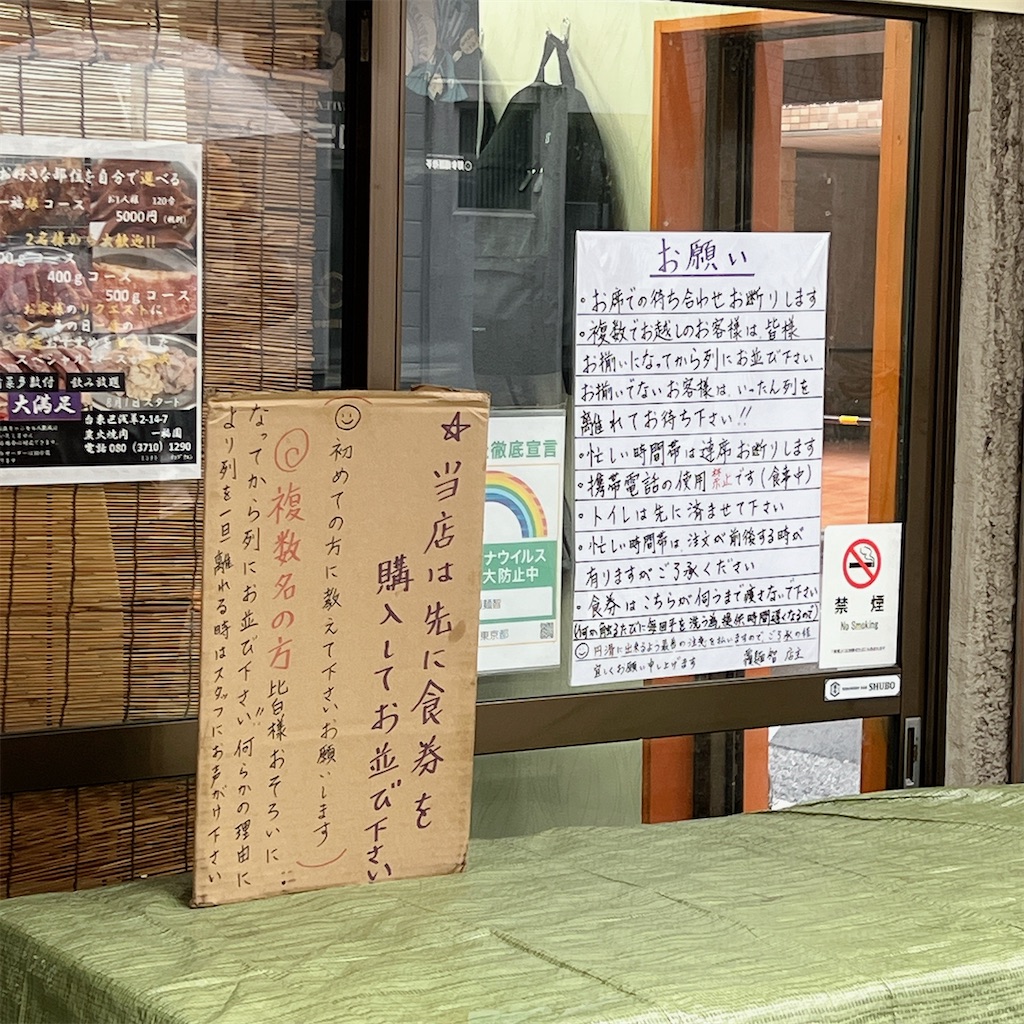 お好きな部位を自分で選べる
一福縁コース
お1人様 120分
5000円(税別)
2名様から大歓迎!!
400gコース
500gコース
お客様のリクエストに
スペシャル
飲み放題
大満足
8月1日スタート
台東区浅草2-14-7
炭火焼肉 一福園
電話080(3710)1290
☆当店は先に食券を
購入してお並び下さい
初めての方に教えて下さい、お願いします
複数名の方 皆様おそろいに
なってから列にお並び下さい!!何らかの理由に
より列を一旦離れる時はスタッフにお声がけ下さい
徹底宣言
ナウイルス
大防止中
麺智
東京都
お願い
・お席での待ち合わせお断りします
・複数でお越しのお客様は皆様
お揃いになってから列にお並び下さい
お揃いでないお客様は、いったん列を
離れてお待ち下さい!!
・忙しい時間帯は連席お断りします
・携帯電話の使用禁止です(食事中)
・トイレは先に済ませて下さい
・忙しい時間帯は、注文が前後する時が
有りますがご了承ください
・食券はこちらが伺うまで渡さないで下さい
(何か触るたびに毎回手を洗う為、提供時間遅くなるので)
円滑に出来るよう最善の注意を払いますので、ご了承の程
宜しくお願い申し上げます
麺智 店主
禁煙
No Smoking
SHUBO